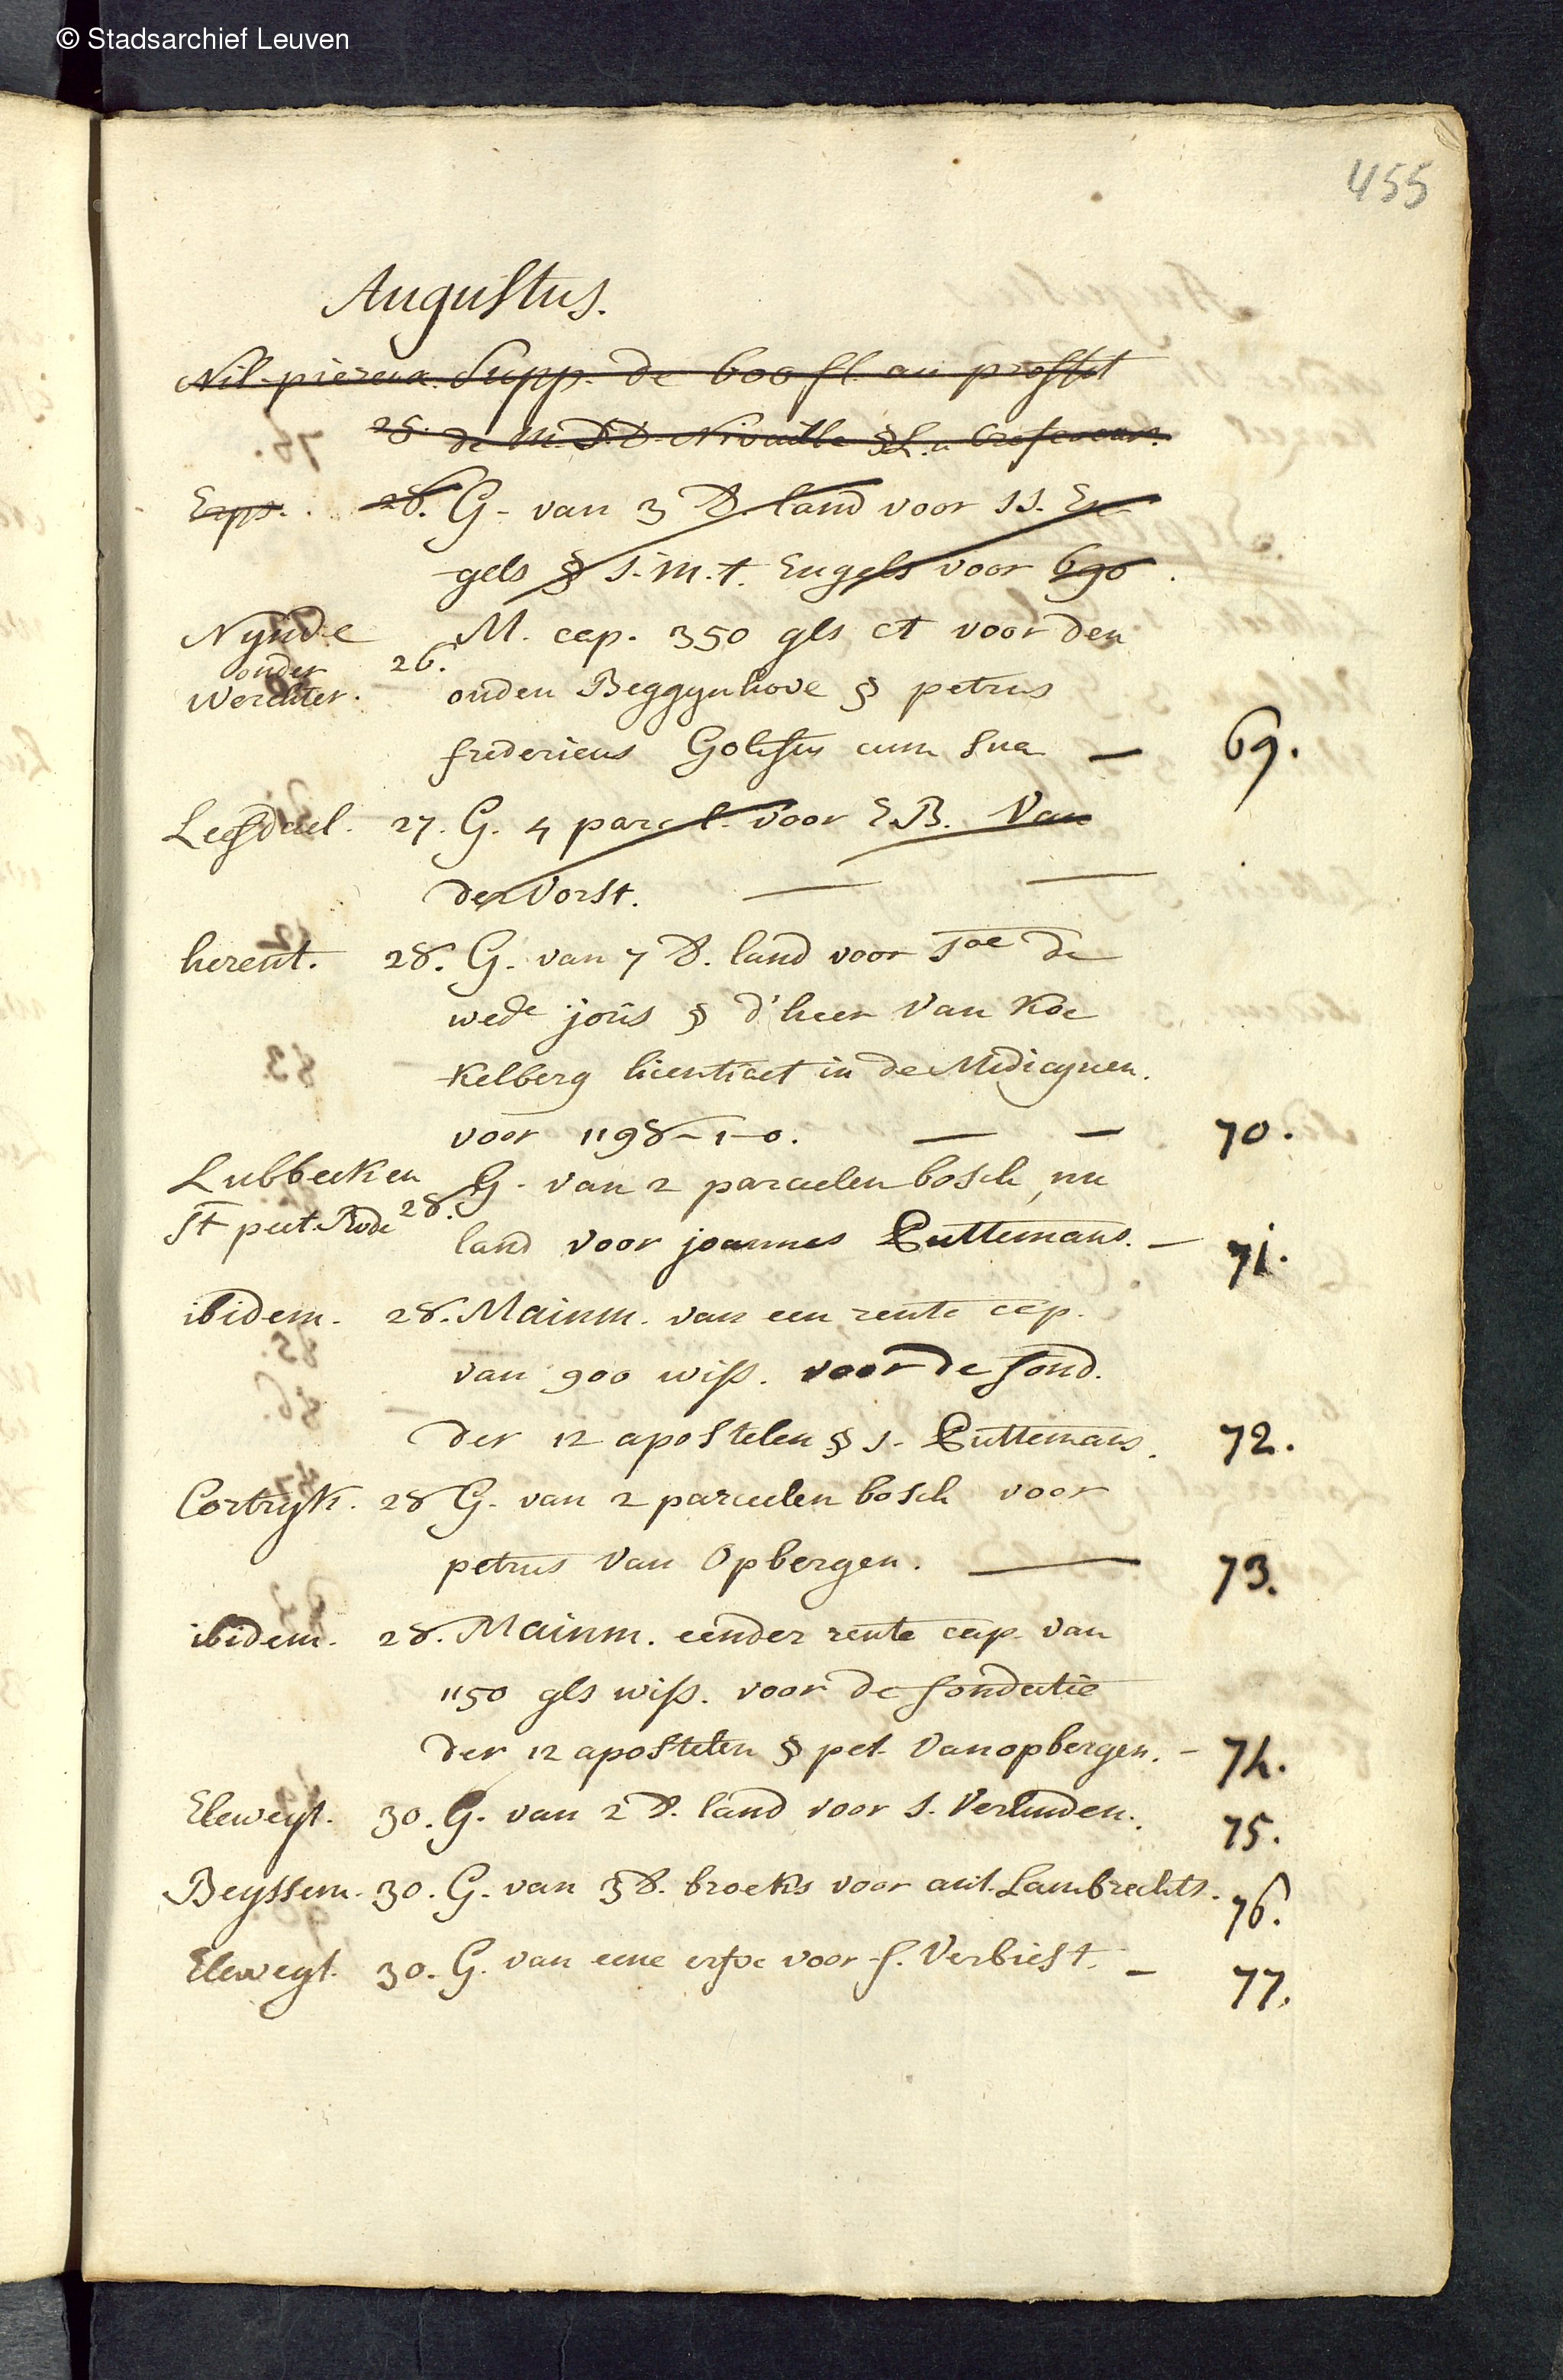 © Stadsarchief Leuven
455
Augustus.
Nil-piereux. Supp. de 600 fl. au proffit
28. de M. D. D. Nivaille § L. a
Erps. 28. G. van 3 D. land voor J J. En
gels § J. M. t. Engels voor 690
Nynde M. cap. 350 gls ct voor den
onder 26.
Werchter. ouden Beggynhove § petrus
fredericus cum sua — 69.
Leefdael. 27. G. 4 parcl. voor E B. Van
der Vorst. — —
herent. 28. G. van 7 D. land voor Joe de
wede joris § d'heer Van Koe
kelberg licentiaet in de Medicynen.
voor 1198-1-0. — — 70.
Lubbeeken G. van 2 parceelen bosch, nu
St peet. Rode 28. land voor joannes Puttemans. — 71.
ibidem. 28. Mainm. van een rente cap.
van 900 wiss. voor de fond.
der 12 apostelen § J. Puttemans. 72.
Cortryk. 28 G. van 2 parceelen bosch voor
petrus Van Opbergen. — 73.
ibidem. 28. Mainm. eender rente cap. van
1150 gls wiss. voor de fondatie
der 12 apostelen § pet. Vanopbergen. - 74.
Eleweyt. 30. G. van 2 D. land voor J. Verlinden. 75.
Beyssem. 30. G. van 3 D. broeks voor ant. Lambrechts. 76.
Eleweyt. 30. G. van eene erfve voor f. Verbiest. — 77.